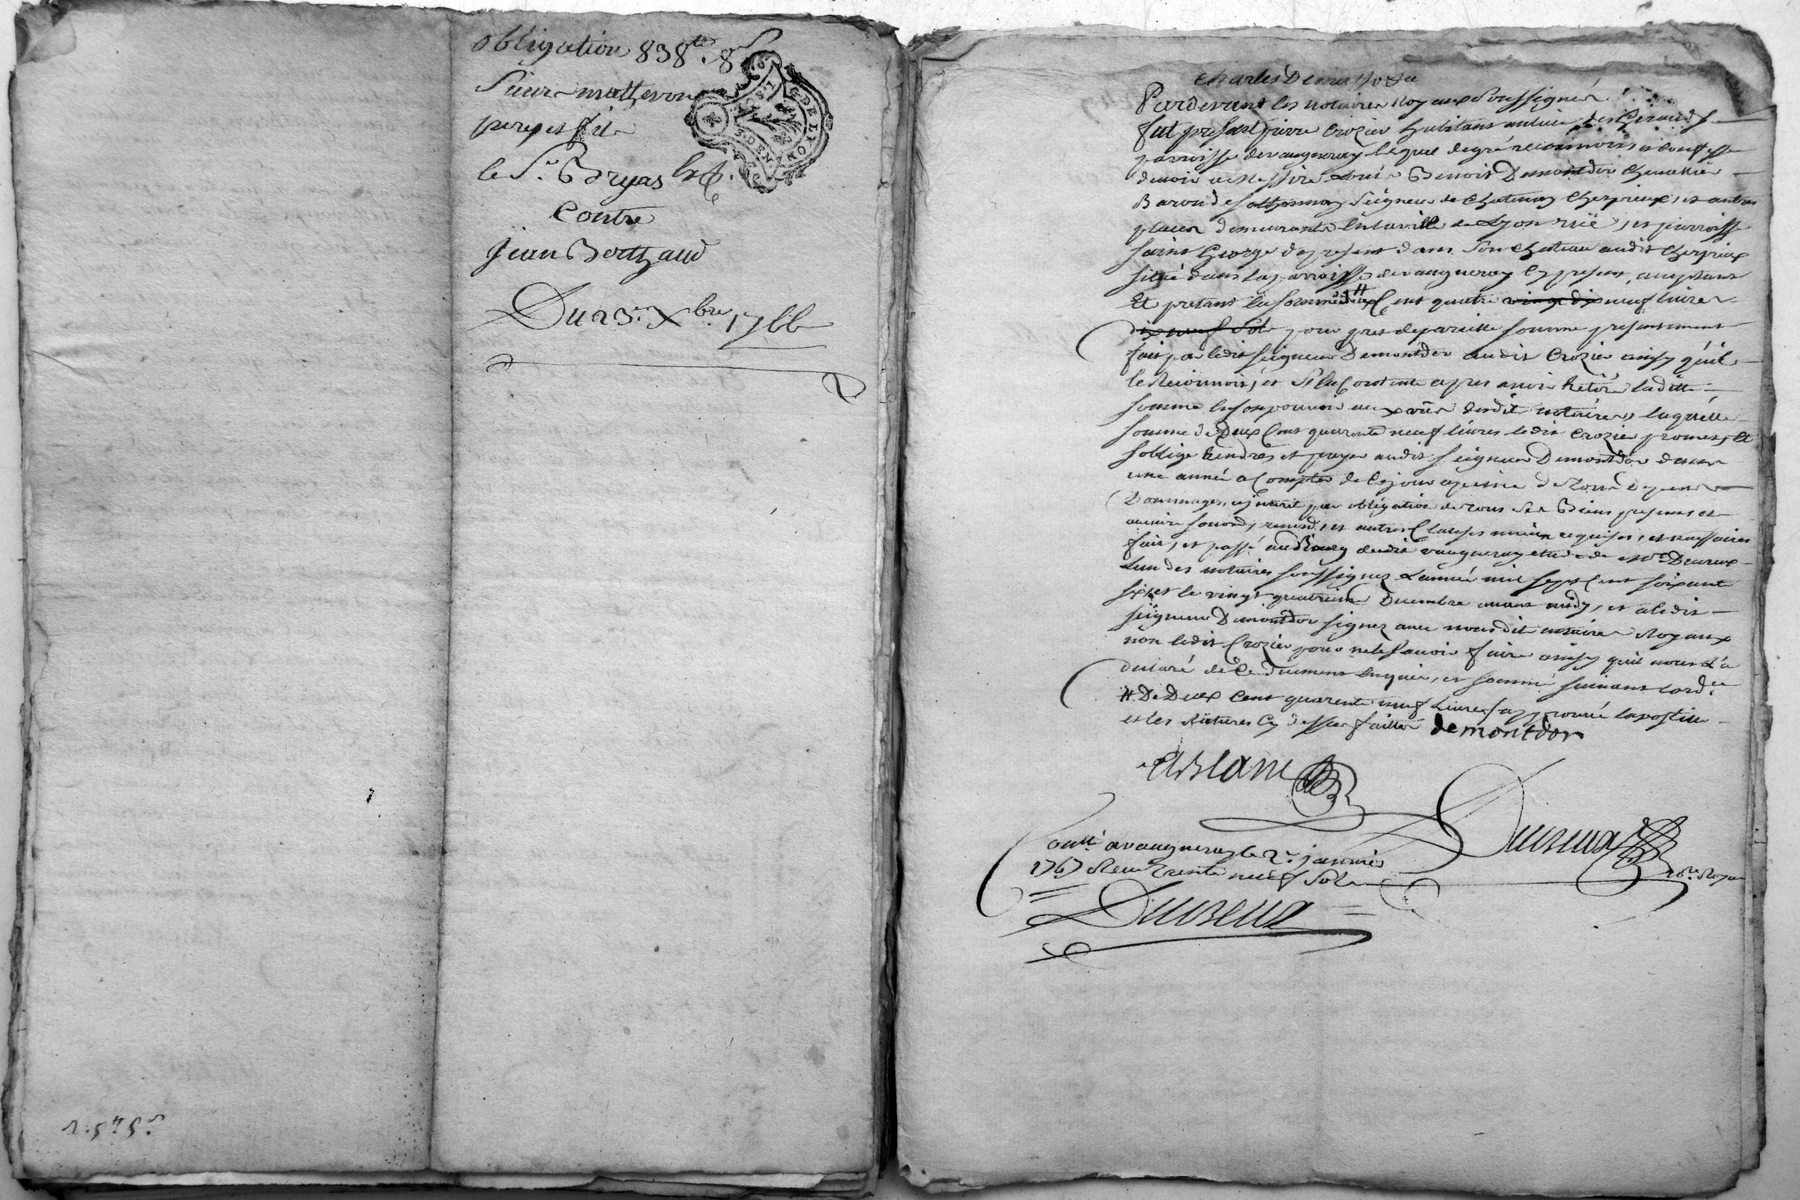 obligation 838 ᵗᵗ. 8 ˢ
Sieurs matheron
pere et fils
le Sr. Bryas
Contre
Jean Berthaud
Du 23e Xbre 1766
GDE LYON
Pardevant les notaires Royaux Soussignés
fut present pierre Crozier habitant au lieu des Girauds
parroisse de vaugneray lequel de gré reconnoist et confesse
devoir a Messire Benoit Demontdor Chevallier
Baron de Seigneur de Chatenay Cherprieux, et autres
places demeurant en la ville de Lyon ruë, et parroisse
Saint George de present dans Son chateau audit
situé dans la parroisse de vaugneray cy present, acceptant
Et pretant la somme # Cent quatre vingt dix neuf livres
dix neuf Sols pour prest de pareille somme presentement
fait par ledit Seigneur Demontdor audit Crozier ainsy qu'il
le Reconnoit, et S'en Contente apres avoir Retiré ladite
somme en Son pouvoir au vüe desdits notaires laquelle
somme de Deux Cent quarente neuf livres ledit Crozier promet, et
s'oblige Rendre, et payer audit Seigneur Demontdor dans
une année a Compter de Ce jour a peine de tous Depens
Dommages, interet par obligation de tous Ses Biens presents et
avenir renond, et autres Clauses requises, et necessaires
fait, et passé au Bourg dudit vaugneray etude de Me Ducreux
L'un des notaires Soussignez L'année mil Sept Cent soixante
six, et le vingt quatrieme Decembre avant midy, et a ledit
seigneur Demontdor signez avec nous dit notaires Royaux
non ledit Crozier pour ne le Savoir faire ainsy qu'il nous l'a
declaré de Ce Duement Enquis, et Sommé suivant l'ordce
# De Deux Cent quarente neuf Livres approuvé l'apostille
et les Ratures Cy dessus faites demontdor
Ducreux
nore Royal
Conlé a vaugneray le 2e janvier
1767 Reçu trente neuf Sols
Ducreux